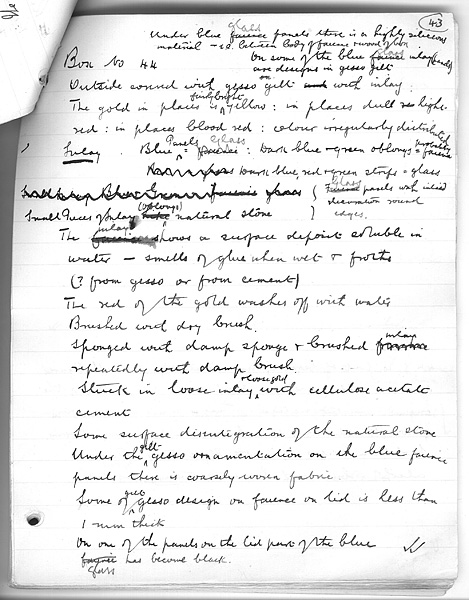 43
glass
Under blue faience panels there is a highly siliceous
material - i.e. between body of faience & wood of box
On some of the blue faience glass inlay panels
are designs in gesso gilt
Box No 44
Outside covered with gesso gilt and with inlay.
The gold in places fairly bright yellow: in places dull & light
red: in places blood red: colour irregularly distributed
Inlay. Blue Panels = faience glass: Dark blue & green oblongs = probably faience
Dark blue red & green strips = glass
Small Pieces of inlay (oblongs) natural stone
{ Faience glass panels with incised
} decoration round
edges.
The faience inlay shows a surface deposit soluble in
water - smells of glue when wet & froths
(? from gesso or from cement)
The red of the gold washes off with water
Brushed with dry brush.
Sponged with damp sponge & brushed faience inlay
repeatedly with damp brush.
Stuck in loose inlay & loose gold with cellulose acetate
cement
Some surface disintegration of the natural stone
Under the gilt gesso ornamentation on the blue faience
panels there is coarsely woven fabric.
Some of gilt gesso design on faience on lid is less than
1 mm thick
On one of the panels on the lid part of the blue
faience glass has become black.